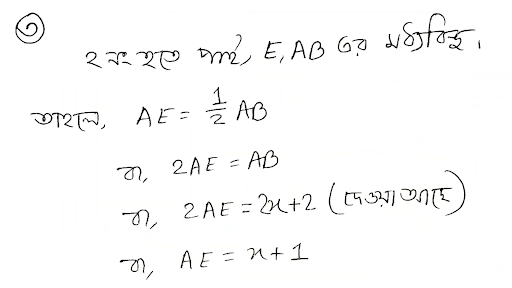 ৩
২ নং হতে পাই, E, AB এর মধ্যবিন্দু।
তাহলে, AE = 1/2 AB
বা, 2AE = AB
বা, 2AE = 2x+2 (দেওয়া আছে)
বা, AE = x+1